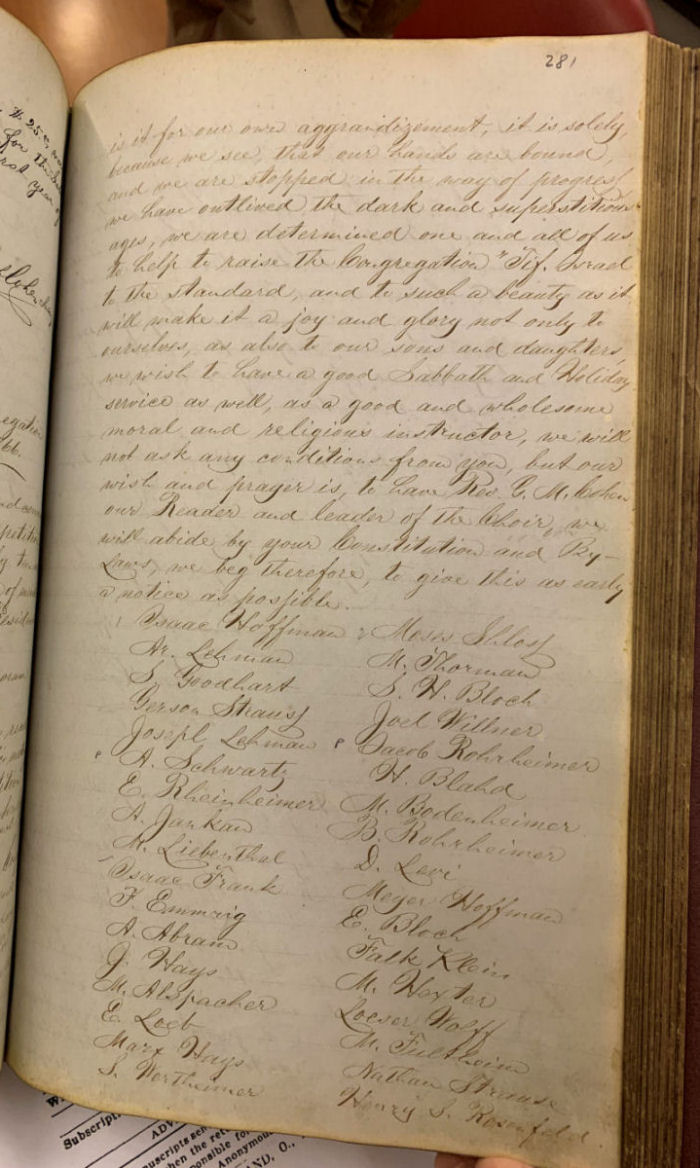 281
is it for our own aggrandizement, it is solely,
because we see, that our hands are bound,
and we are stopped in the way of progress
we have outlived the dark and superstitious
ages, we are determined one and all of us
to help to raise the Congregation "Tif. Israel
to the standard, and to such a beauty as it
will make it a joy and glory not only to
ourselves, as also to our sons and daughters,
we wish to have a good Sabbath and Holiday
service as well, as a good and wholesome
moral and religious instructor, we will
not ask any conditions from you, but our
wish and prayer is, to have Rev. G. M. Cohen
our Reader and leader of the Choir, we
will abide by your Constitution and By-
Laws, we beg therefore, to give this as early
a notice as possible.
Isaac Hoffman
Ar. Lehman
S. Goodhart
Gerson Strauss
Joseph Lehman
A. Schwartz
E. Rheinheimer
A. Jankau
H. Liebenthal
Isaac Frank
F. Emmrig
A. Abram
J. Hays
M. Alspacher
E. Loeb
Marx Hays
S. Wertheimer
Moses Shloss
M. Thorman
S. H. Bloch
Joel Willner
Jacob Rohrheimer
H. Blahd
M. Bodenheimer
B. Rohrheimer
D. Levi
Meyer Hoffman
E. Bloch
Falk Klein
M. Hexter
Loeser Wolff
M. Fultheim
Nathan Strauss
Henry S. Rosenfeld
Subscripti
ADV
nuscripts sen
when the ret
sponsible for
Anonymou
AND, O.,